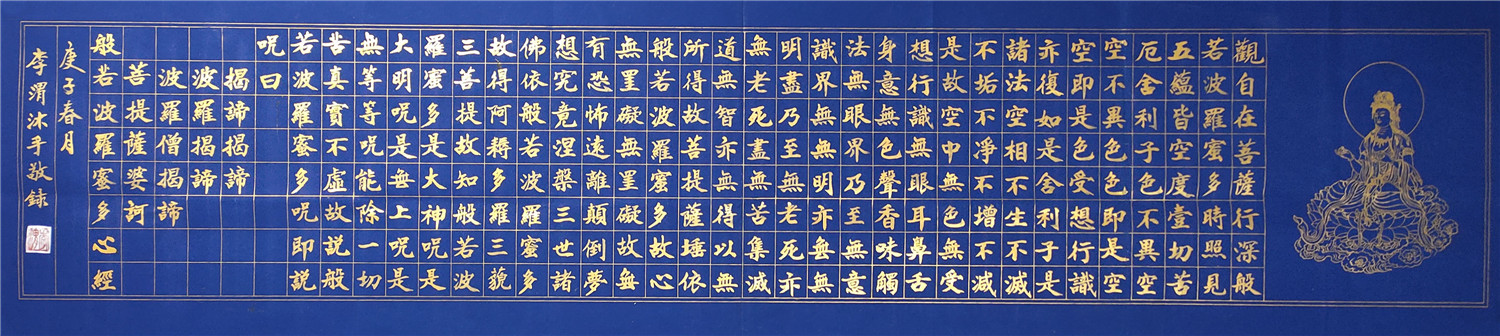 觀自在菩薩行深般
若波羅蜜多時照見
五蘊皆空度壹切苦
厄舍利子色不異空
空不異色色即是空
空即是色受想行識
亦復如是舍利子是
諸法空相不生不滅
不垢不淨不增不減
是故空中無色無受
想行識無眼耳鼻舌
身意無色聲香味觸
法無眼界乃至無意
識界無無明亦無無
明盡乃至無老死亦
無老死盡無苦集滅
道無智亦無得以無
所得故菩提薩埵依
般若波羅蜜多故心
無罣礙無罣礙故無
有恐怖遠離顛倒夢
想究竟涅槃三世諸
佛依般若波羅蜜多
故得阿耨多羅三藐
三菩提故知般若波
羅蜜多是大神呪是
大明呪是無上呪是
無等等呪能除一切
苦真實不虛故説般
若波羅蜜多呪即説
呪曰
揭諦揭諦
波羅揭諦
波羅僧揭諦
菩提薩婆訶
般若波羅蜜多心經
庚子春月
李渭沐手敬録